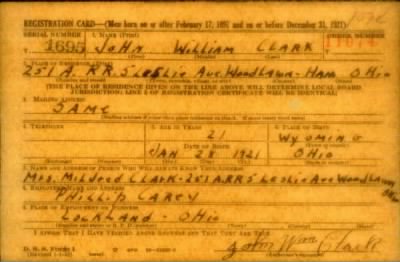 REGISTRATION CARD—(Men born on or after February 17, 1897 and on or before December 31, 1921)
SERIAL NUMBER 1. NAME (Print) ORDER NUMBER
1695 JOHN WILLIAM CLARK
2. PLACE OF RESIDENCE (Print)
251 A. RR5 LESLIE AVE WOODLAWN-HAM OHIO
[THE PLACE OF RESIDENCE GIVEN ON THE LINE ABOVE WILL DETERMINE LOCAL BOARD
JURISDICTION; LINE 2 OF REGISTRATION CERTIFICATE WILL BE IDENTICAL]
3. MAILING ADDRESS
SAME
4. TELEPHONE 5. AGE IN YEARS 6. PLACE OF BIRTH
21 WYOMING
DATE OF BIRTH
JAN 28 1921 OHIO
7. NAME AND ADDRESS OF PERSON WHO WILL ALWAYS KNOW YOUR ADDRESS
MRS. MILDRED CLARK-251A RR5 LESLIE AVE WOODLAWN
8. EMPLOYER'S NAME AND ADDRESS
PHILLIP CAREY
9. PLACE OF EMPLOYMENT OR BUSINESS
LOCKLAND - OHIO
I AFFIRM THAT I HAVE VERIFIED ABOVE ANSWERS AND THAT THEY ARE TRUE.
D. S. S. Form 1
John Wm Clark